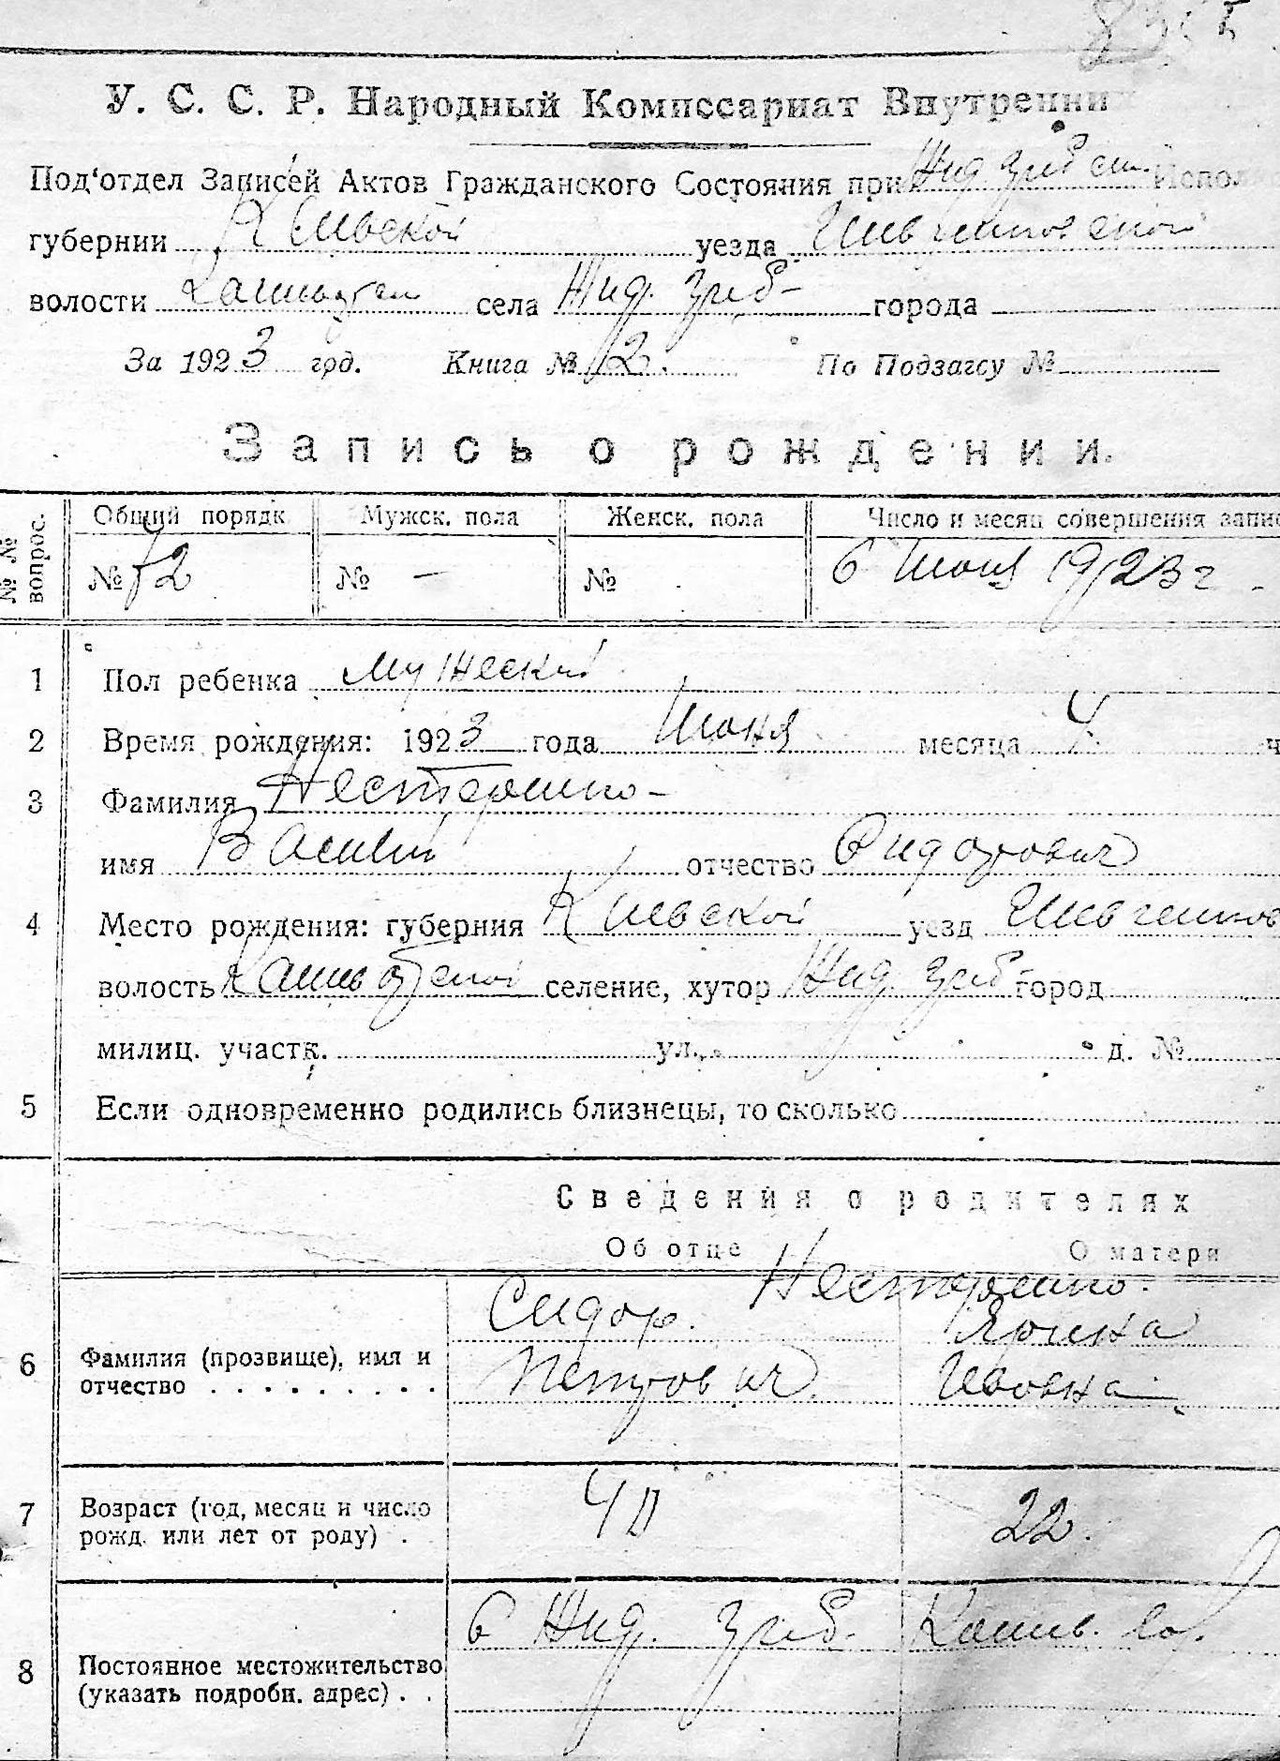 У. С. С. Р. Народный Комиссариат Внутренних
Под'отдел Записей Актов Гражданского Состояния при Жид Греб ст. Исполн
губернии Киевской уезда Шевченковской
волости села Жид. Греб- города
За 1923 год. Книга № 2. По Подзагсу №
Запись о рождении.
№№ вопрос. Общий порядк Мужск. пола Женск. пола Число и месяц совершения запис
№ 72 № — № 6 Июня 1923 г -
1 Пол ребенка Мужеский
2 Время рождения: 1923 года Июня месяца 4. ч
3 Фамилия Нестеренко-
имя Василий отчество Сидорович
4 Место рождения: губерния Киевской уезд Шевченков
волость селение, хутор Жид. Греб город
милиц. участк. ул. д. №
5 Если одновременно родились близнецы, то сколько
Сведения о родителях
Об отце О матери
Нестеренко.
Сидор. Ярина
6 Фамилия (прозвище), имя и
отчество . . . . . . . . . . Петрович. Ивовна
7 Возраст (год, месяц и число
рожд. или лет от роду) . 40 22.
с Жид. Греб.
8 Постоянное местожительство
(указать подробн. адрес) . .